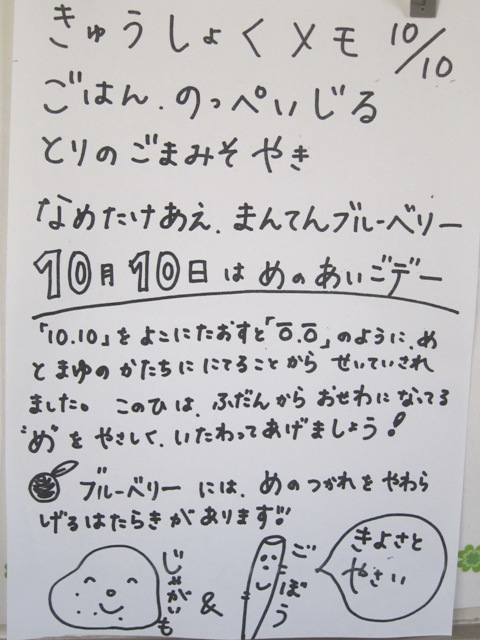 きゅうしょくメモ 10/10
ごはん.のっぺいじる
とりのごまみそやき
なめたけあえ.まんてんブルーベリー
10月10日はめのあいごデー
「10.10」をよこにたおすと「ō.ō」のように、め
とまゆのかたちににてることからせいていされ
ました。このひは、ふだんからおせわになってる
"め"をやさしく、いたわってあげましょう!
ブルーベリーには、めのつかれをやわら
げるはたらきがあります!!
じゃがいも
&
ごぼう
きよさと
やさい